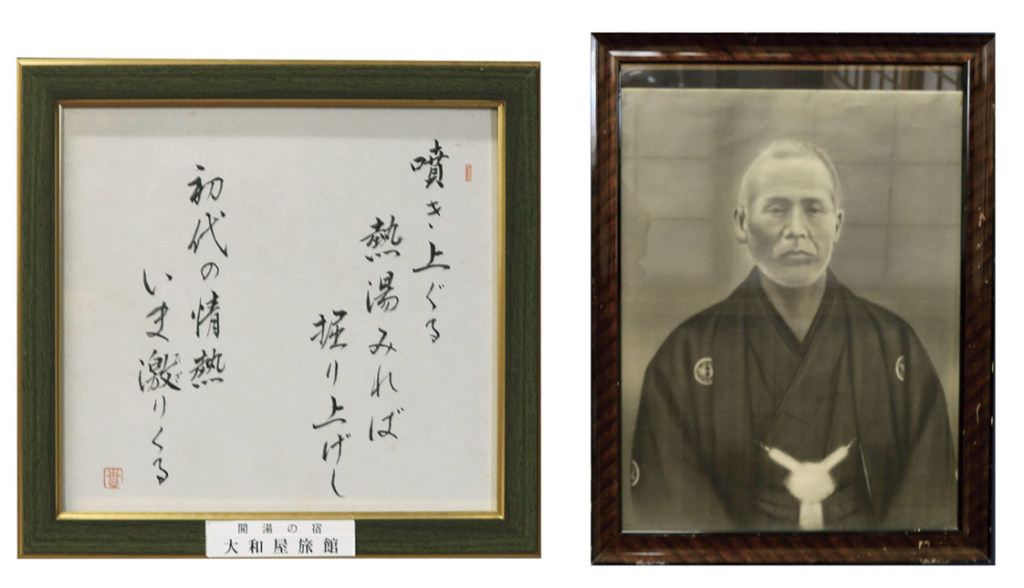 噴き上ぐる
熱湯みれば
掘り上げし
初代の情熱
いま激りくる
開湯の宿
大和屋旅館